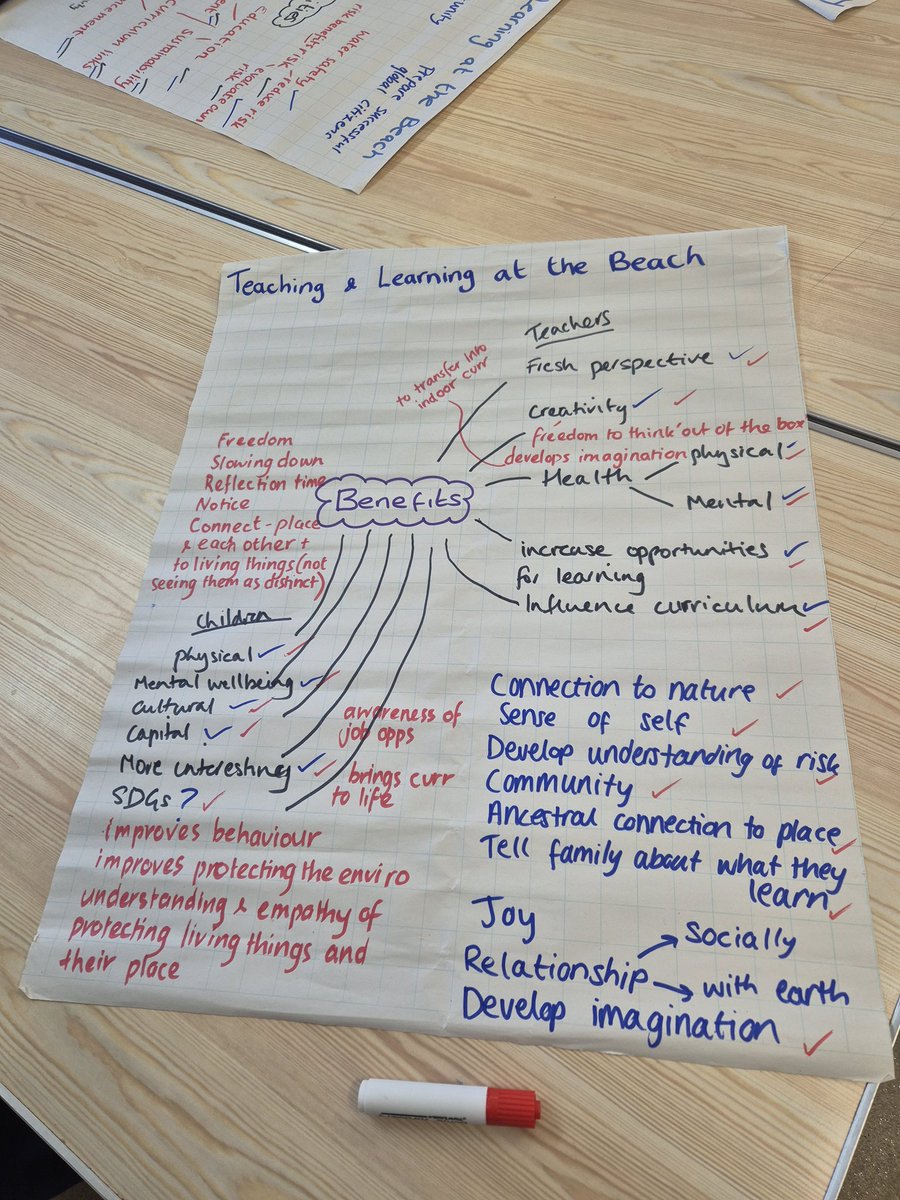 Teaching & Learning at the Beach
Teachers
Fresh perspective
creativity
to transfer into
indoor curr
freedom to think out of the box
develops imagination
Health
physical
Mental
increase opportunities
for learning
Influence curriculum
Benefits
Freedom
Slowing down
Reflection time
Notice
Connect - place
& each other +
to living things (not
seeing them as distinct)
Children
physical
Mental wellbeing
Cultural
Capital
More interesting
SDGs?
awareness of
job opps
brings curr
to life
improves behaviour
improves protecting the enviro
understanding & empathy of
protecting living things and
their place
Connection to nature
Sense of self
Develop understanding of risk
Community
Ancestral connection to place
Tell family about what they
learn
Joy
Relationship
Socially
with earth
Develop imagination
Learning at the Beach
Prepare successful
global citizens
Water safety
risk benefit
risk
reduce risk
evaluate own
risk
Education
Sustainability
curriculum links